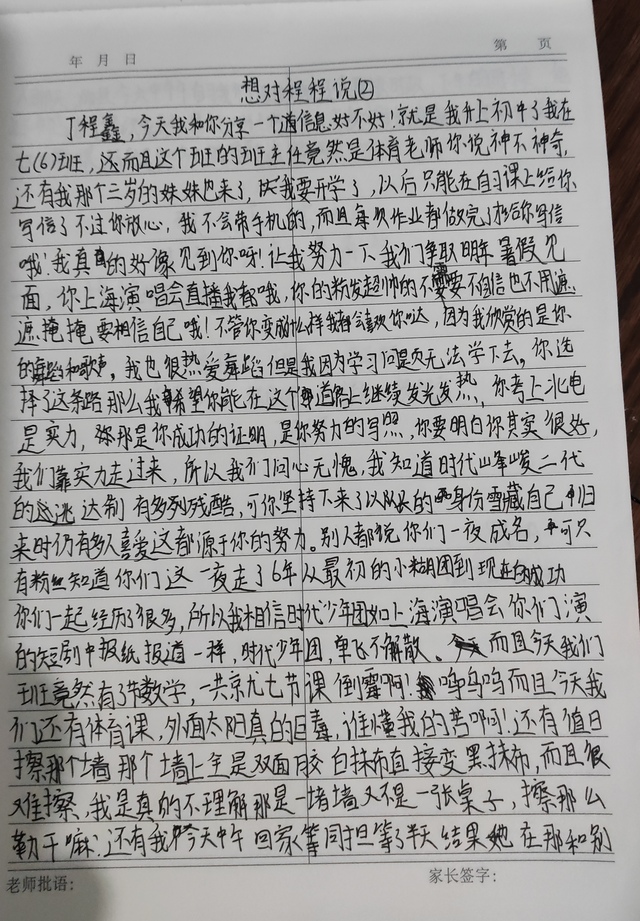 年 月 日 第 页
想对程程说②
丁程鑫，今天我和你分享一个消息好不好！就是我升上初中了我在
七(6)班，还而且这个班的班主任竟然是体育老师你说神不神奇，
还有我那个三岁的妹妹也来了，我要开学了，以后只能在自习课上给你
写信了不过你放心，我不会带手机的，而且每次作业都做完了才给你写信
哦！我真的好像见到你呀！让我努力一下我们争取明年暑假见
面，你上海演唱会直播我都哦，你的粉发超帅的不要不自信也不用遮
遮掩掩要相信自己哦！不管你变成什么样我都会喜欢你哒，因为我欣赏的是你
的舞蹈和歌声。我也很热爱舞蹈但是我因为学习问题页无法学下去。你选
择了这条路那么我希望你能在这个道路上继续发光发热，你考上北电
是实力，那是你成功的证明，是你努力的写照，你要明白你其实很好，
我们靠实力走过来，所以我们问心无愧，我知道时代峰峻二代
的 达制有多列残酷，可你坚持下来了以队长的身份雪藏自己归
来时仍有多人喜爱这都源于你的努力。别人都说你们一夜成名，可只
有粉丝知道你们这一夜走了6年从最初的小糊团到现在的成功
你们一起经历了很多，所以我相信时代少年团如上海演唱会你们演
的短剧中报纸报道一样，时代少年团，单飞不解散。而且今天我们
班竟然有了节数学，一共京尤七节课倒霉啊！呜呜呜而且今天我
们还有体育课，外面太阳真的巨毒，谁懂我的苦啊！还有值日
擦那个墙那个墙上全是双面胶白抹布直接变黑抹布，而且很
难擦，我是真的不理解那是一堵墙又不是一张桌子，擦那么
勤干嘛！还有我今天中午回家等同担等了半天结果她在那和别
老师批语： 家长签字：